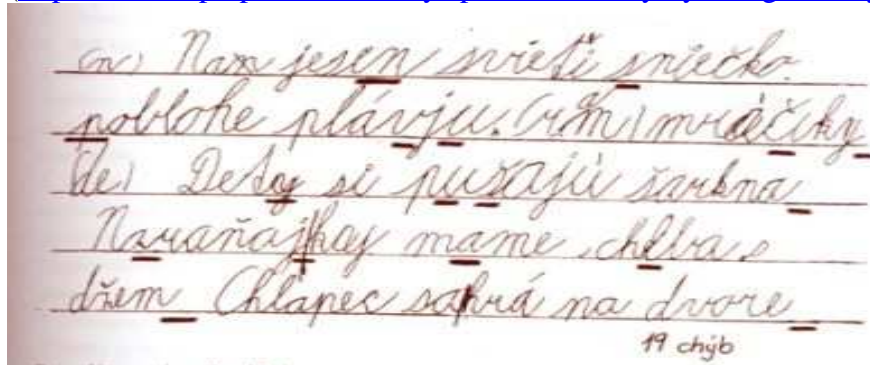 (n) Nam jesen svieti sniečko.
poblohe plávju. (rm) mráčiky
(de) Dety si pužajú šarkna
Nzraňajkay mame chlba s
džem Chlapec sahrá na dvore
19 chýb